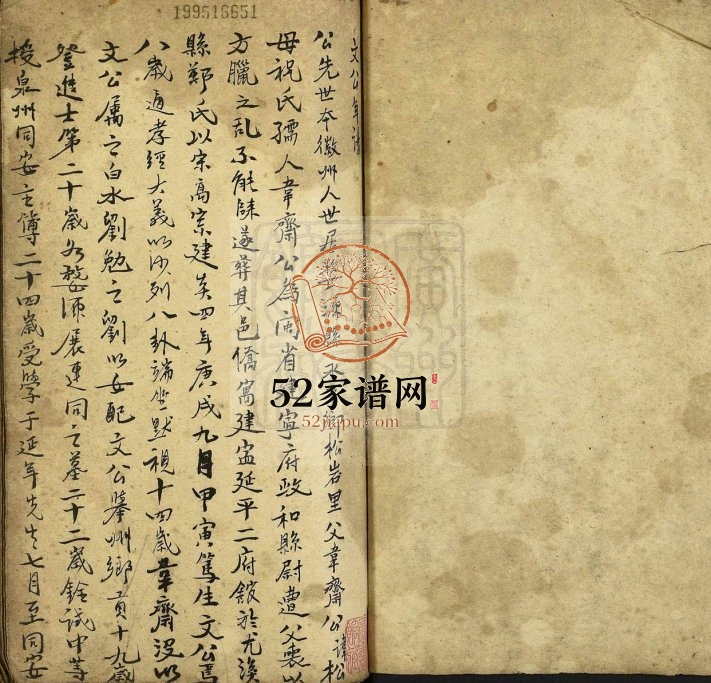 199516651
文公年譜
公先世本徽州人世居婺源縣永 鄉松岩里父韋齋公諱松
母祝氏孺人韋齋公為閩省建寧府政和縣尉遭父喪以
方臘之乱不能歸遂葬其邑僑寓建 延平二府舘於尤溪
縣鄭氏以宋高宗建炎四年庚戌九月甲寅篤生文公焉
八歲通孝經大義以沙列八卦端坐默視十四歲韋齋沒以
文公属之白水劉勉之劉以女配文公舉州鄉貢十九歲
登進士第二十歲 婺源展連同之墓二十二歲銓試中等
授泉州同安主簿二十四歲受學于延年先生七月至同安
52家谱网
52jiapu.com